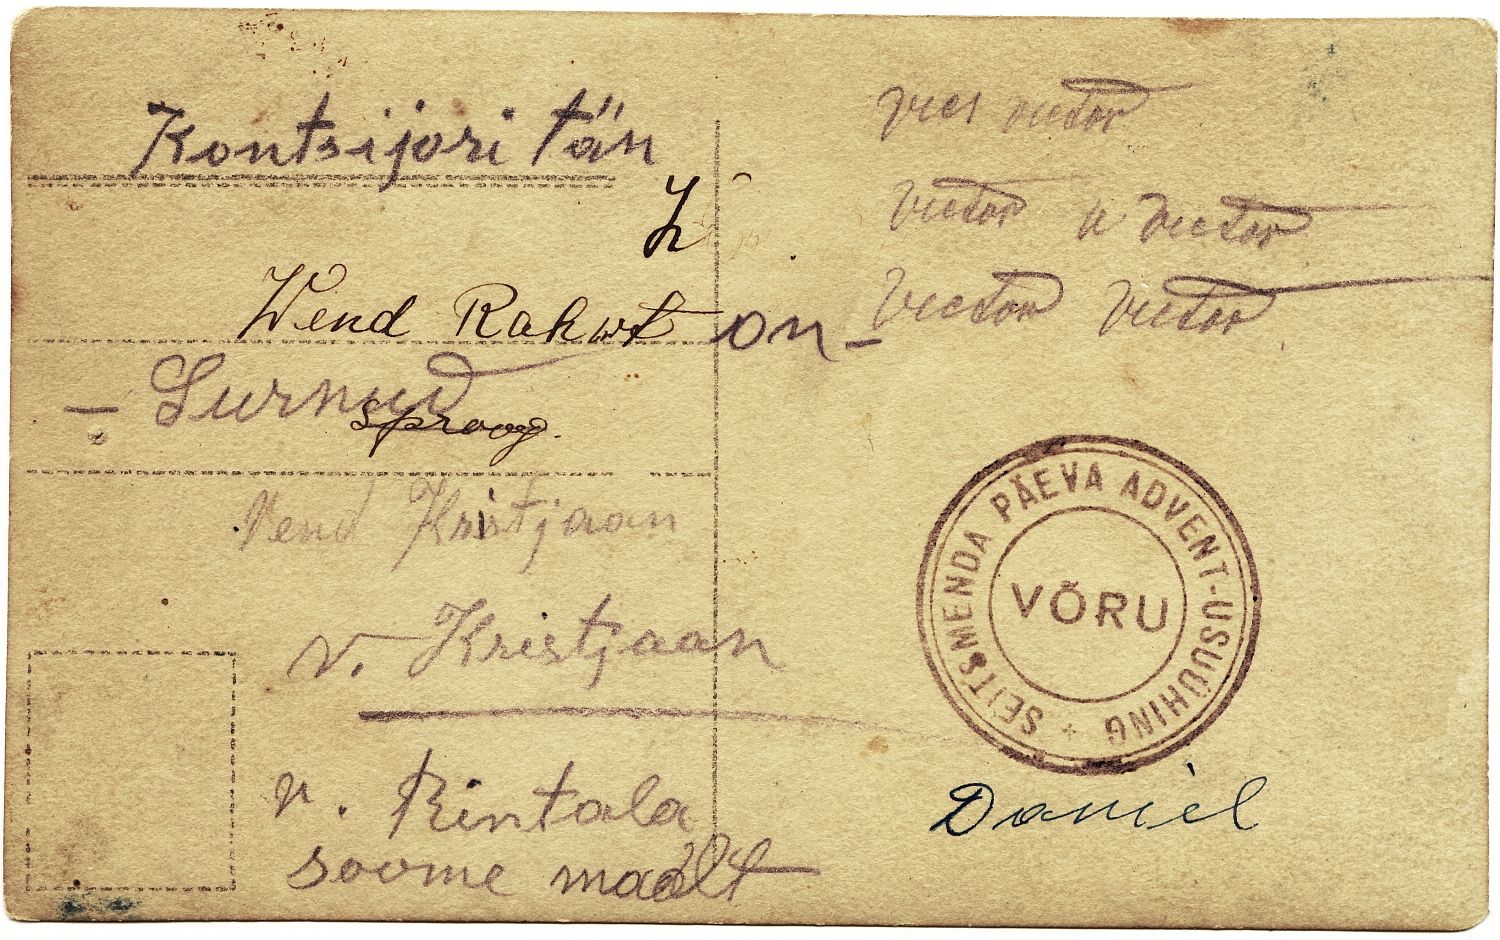 Kontsijori tän
Wend Rahwt on-
- Surnud
sproog.
Vend Kristjaan
v. Kristjaan
v. Rintala
soome maalt
victor
victor victor
victor victor
SEITSMENDA PÄEVA ADVENT-USUÜHING
VÕRU
Daniel